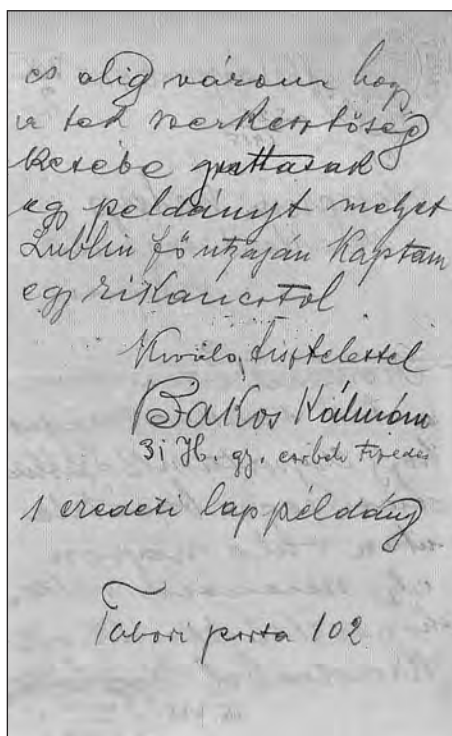 és alig várom hogy
a tek szerkesztőség
kezébe jutassak
egy példányt melyet
Lublin fő utzaján Kaptam
egy rikancstol
Kiváló tisztelettel
Bakos Kálmán
31 H. gy. tizedes
1 eredeti lap példány
Tabori posta 102